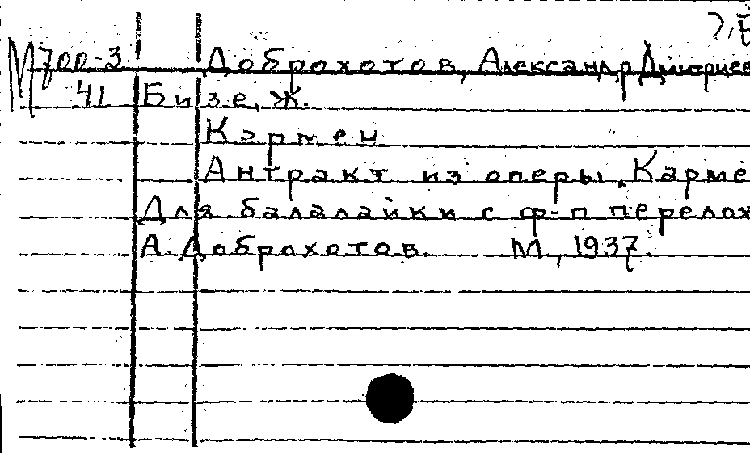 М700-3 Доброхотов, Александр Дмитриев
41 Бизе, Ж.
Кармен
Антракт из оперы „Карме
Для балалайки с ф-п перелож
А. Доброхотов. М., 1937.